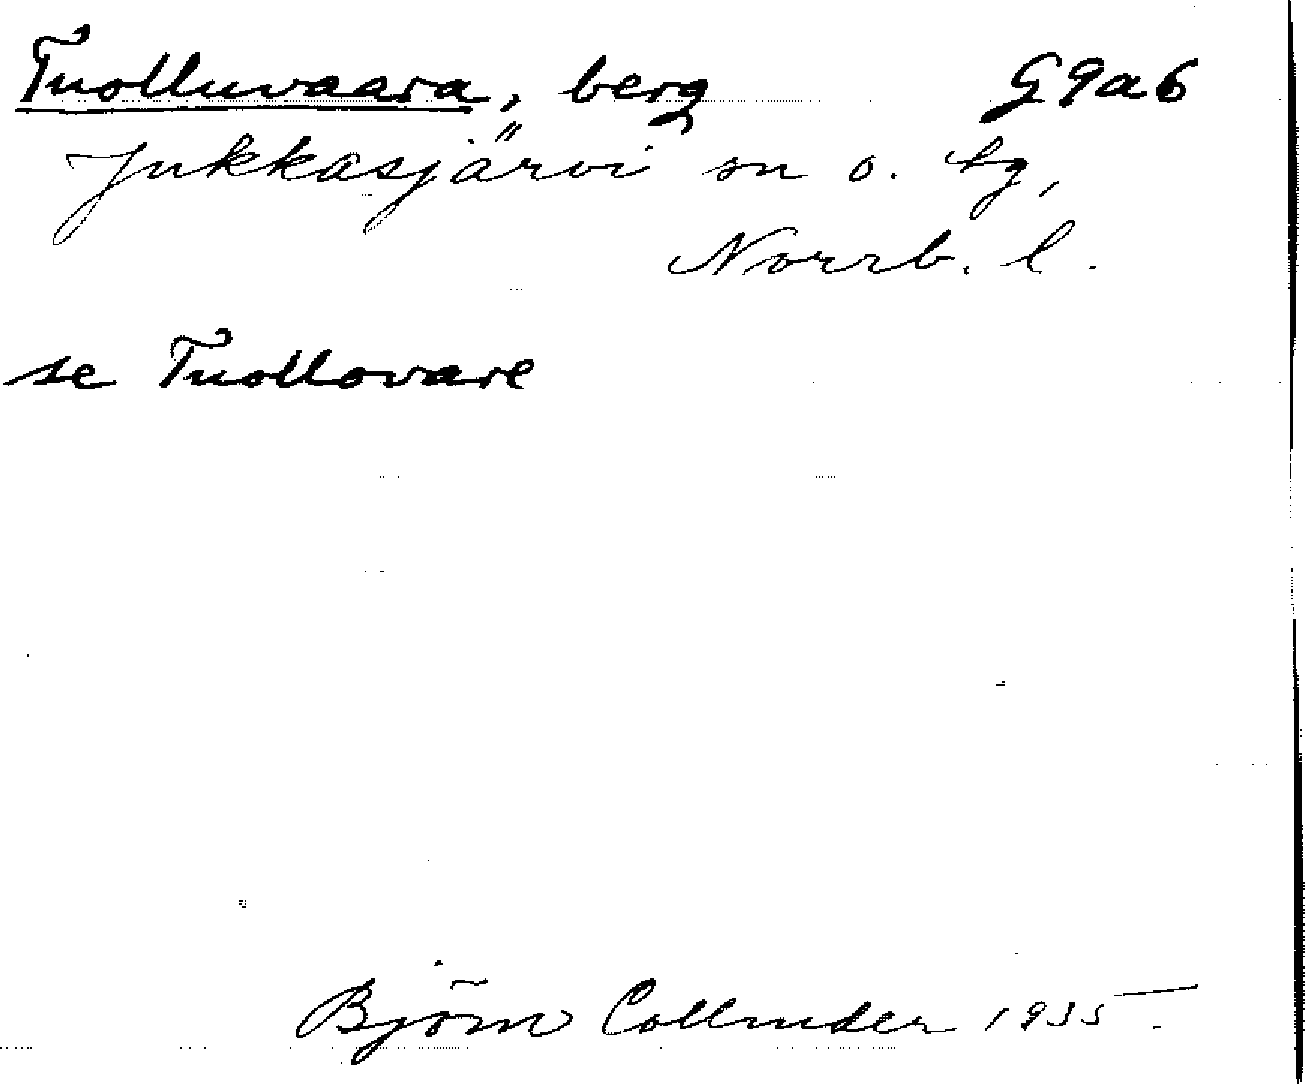 Tuolluvaara, berg G9a6
Jukkasjärvi sn o. tg,
Norrb. l.
se Tuollovare
Björn Collinder 1935.